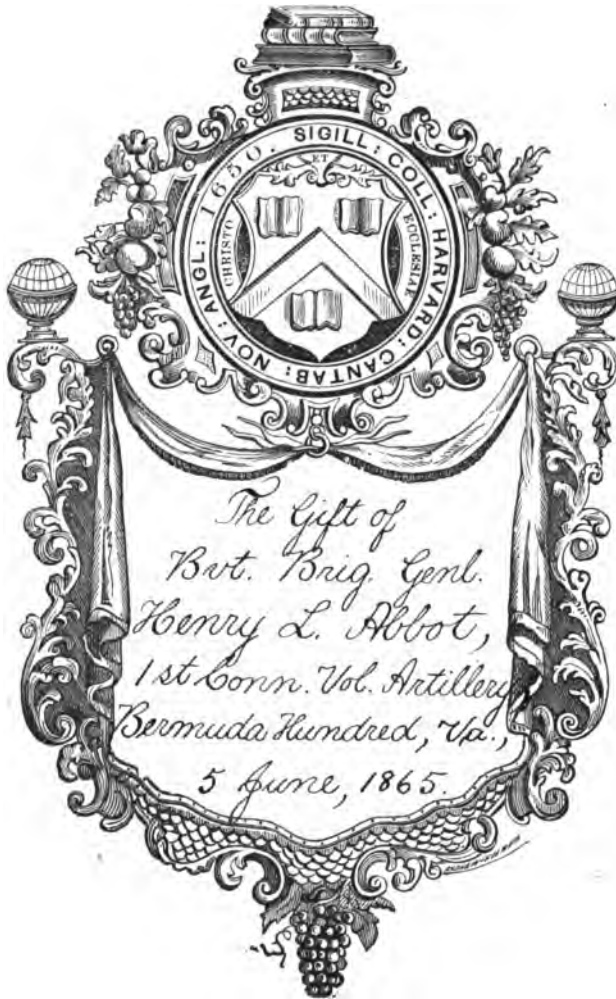 SIGILL: COLL: HARVARD: CANTAB: NOV: ANGL: 1650.
CHRISTO ET ECCLESIAE
The Gift of
Bvt. Brig. Genl.
Henry L. Abbot,
1st Conn. Vol. Artillery,
Bermuda Hundred, Va.,
5 June, 1865.